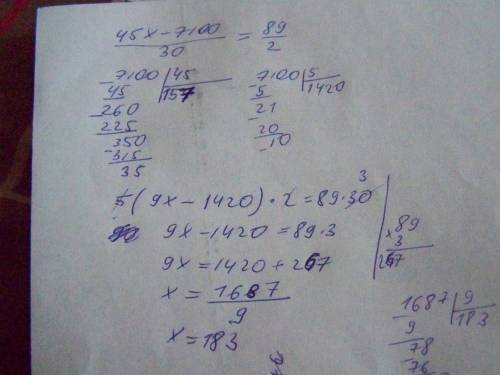 45x-7100 / 30 = 89 / 2
-7100 | 45
45 | 157
-260
225
-350
-315
35
-7100 | 5
5 | 1420
-21
20
-10
3
5(9x-1420)·2=89·30
9x-1420=89·3
9x=1420+267
x=1687 / 9
x=183
×89
3
267
-1687 | 9
9 | 183
-78
76